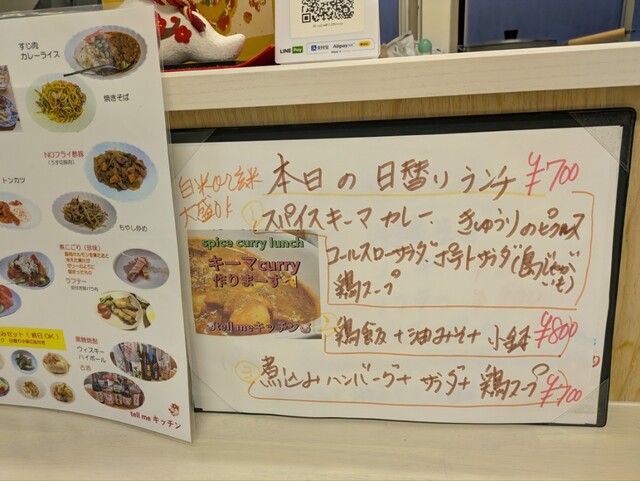 すじ肉
カレーライス
焼きそば
NOフライ酢豚
(うす切豚肉)
トンカツ
もやし炒め
魚こごり(珍味)
ラフテー
黒糖焼酎
ウイスキー
ハイボール
tell me キッチン
LINE Pay
Alipay
白米or玄米
大盛りOK
本日の日替りランチ ¥700
①スパイスキーマカレー、きゅうりのピクルス
コールスローサラダ、ポテトサラダ(島じゃがいも)
鶏スープ
spice curry lunch
キーマcurry
作りまーす
tell meキッチン
②鶏飯+油みそ+小鉢 ¥800
③煮込みハンバーグ+サラダ+鶏スープ ¥700